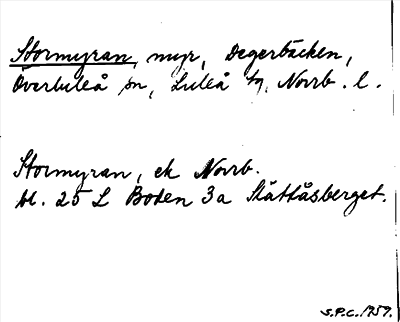 Stormyran, myr, Degerbäcken,
Överluleå sn, Luleå tg, Norrb. l.
Stormyran, ek Norrb.
bl. 25 L Boden 3a Slåttåsberget.
S.P.C. 1959.